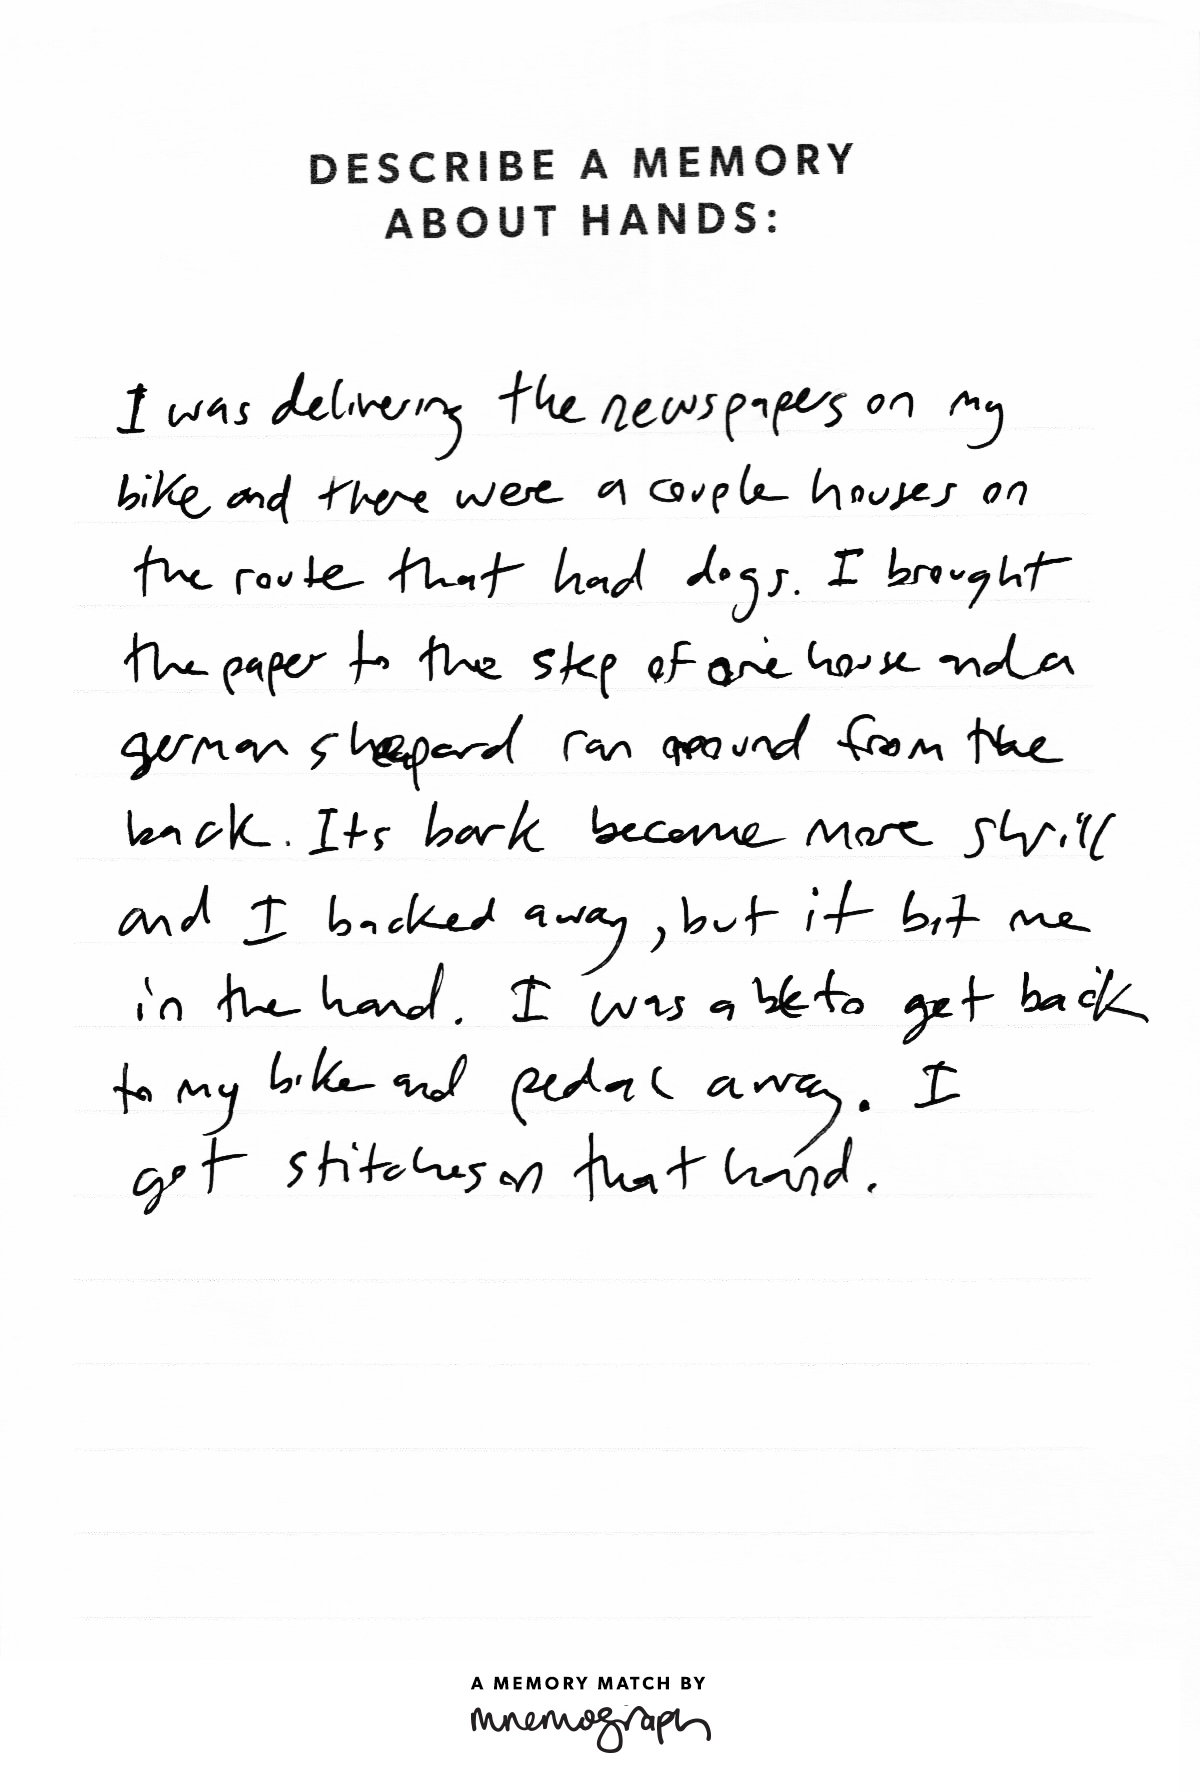 DESCRIBE A MEMORY
ABOUT HANDS:
I was delivering the newspapers on my
bike and there were a couple houses on
the route that had dogs. I brought
the paper to the step of one house and a
german shepard ran around from the
back. Its bark become more shrill
and I backed away, but it bit me
in the hand. I was able to get back
to my bike and pedal away. I
got stitches on that hand.
A MEMORY MATCH BY
mnemograph